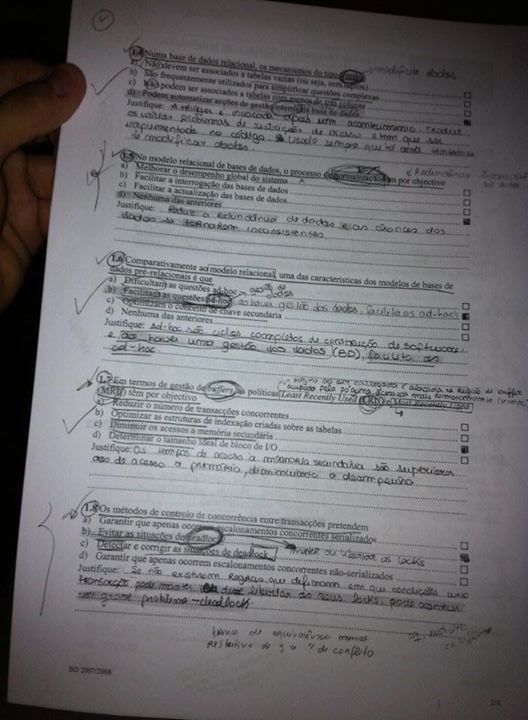 1.4 Numa base de dados relacional, os mecanismos do tipo modificar dados
a) Não devem ser associados a tabelas vazias (ou seja, sem tuplos)
b) São frequentemente utilizados para simplificar questões complexas
c) Não podem ser associados a tabelas com menos de três colunas
d) Podem automatizar acções de gestão interna da base de dados
Justifique: A trigger é invocada após um acontecimento. reduz
os vários problemas de restrições de acesso e tem que ser
implementada no código. Usado sempre que
modificar dados.
1.5 No modelo relacional de bases de dados, o processo de normalização tem por objectivo
a) Melhorar o desempenho global do sistema
b) Facilitar a interrogação das bases de dados
c) Facilitar a actualização das bases de dados
d) Nenhuma das anteriores
Justifique: Reduz a Redundância de dados e as chances dos
dados se tornarem inconsistentes.
1.6 Comparativamente ao modelo relacional, uma das características dos modelos de bases de
dados pré-relacionais é que
a) Dificultam as questões ad-hoc gestão de dados
b) Facilitam as questões ad-hoc gestão dos dados, facilita os ad-hoc's
c) Optimizam o conceito de chave secundária
d) Nenhuma das anteriores
Justifique: Ad-hoc são ciclos completos de construção de softwares,
e ao haver uma gestão dos dados (BD), facilita as
ad-hoc.
1.7 Em termos de gestão de buffers, as políticas Least Recently Used (LRU) e Most Recently Used
(MRU) têm por objectivo
a) Reduzir o número de transacções concorrentes
b) Optimizar as estruturas de indexação criadas sobre as tabelas
c) Diminuir os acessos a memória secundária
d) Determinar o tamanho ideal de bloco de I/O
Justifique: Os tempos de acesso à memória secundária são superiores
aos de acesso a primária, diminuindo o desempenho
1.8 Os métodos de controlo de concorrência entre transacções pretendem
a) Garantir que apenas ocorrem escalonamentos concorrentes serializados
b) Evitar as situações de deadlock
c) Detectar e corrigir as situações de deadlock manter ou libertar os locks
d) Garantir que apenas ocorrem escalonamentos concorrentes não-serializados
Justifique: Se não existirem Regras que definam em que condições uma
transacção pode manter ou deve libertar os seus locks, pode acontecer
um grave problema - deadlock
de equivalência menos
restritiva de q a " de conflito
BD 2007/2008